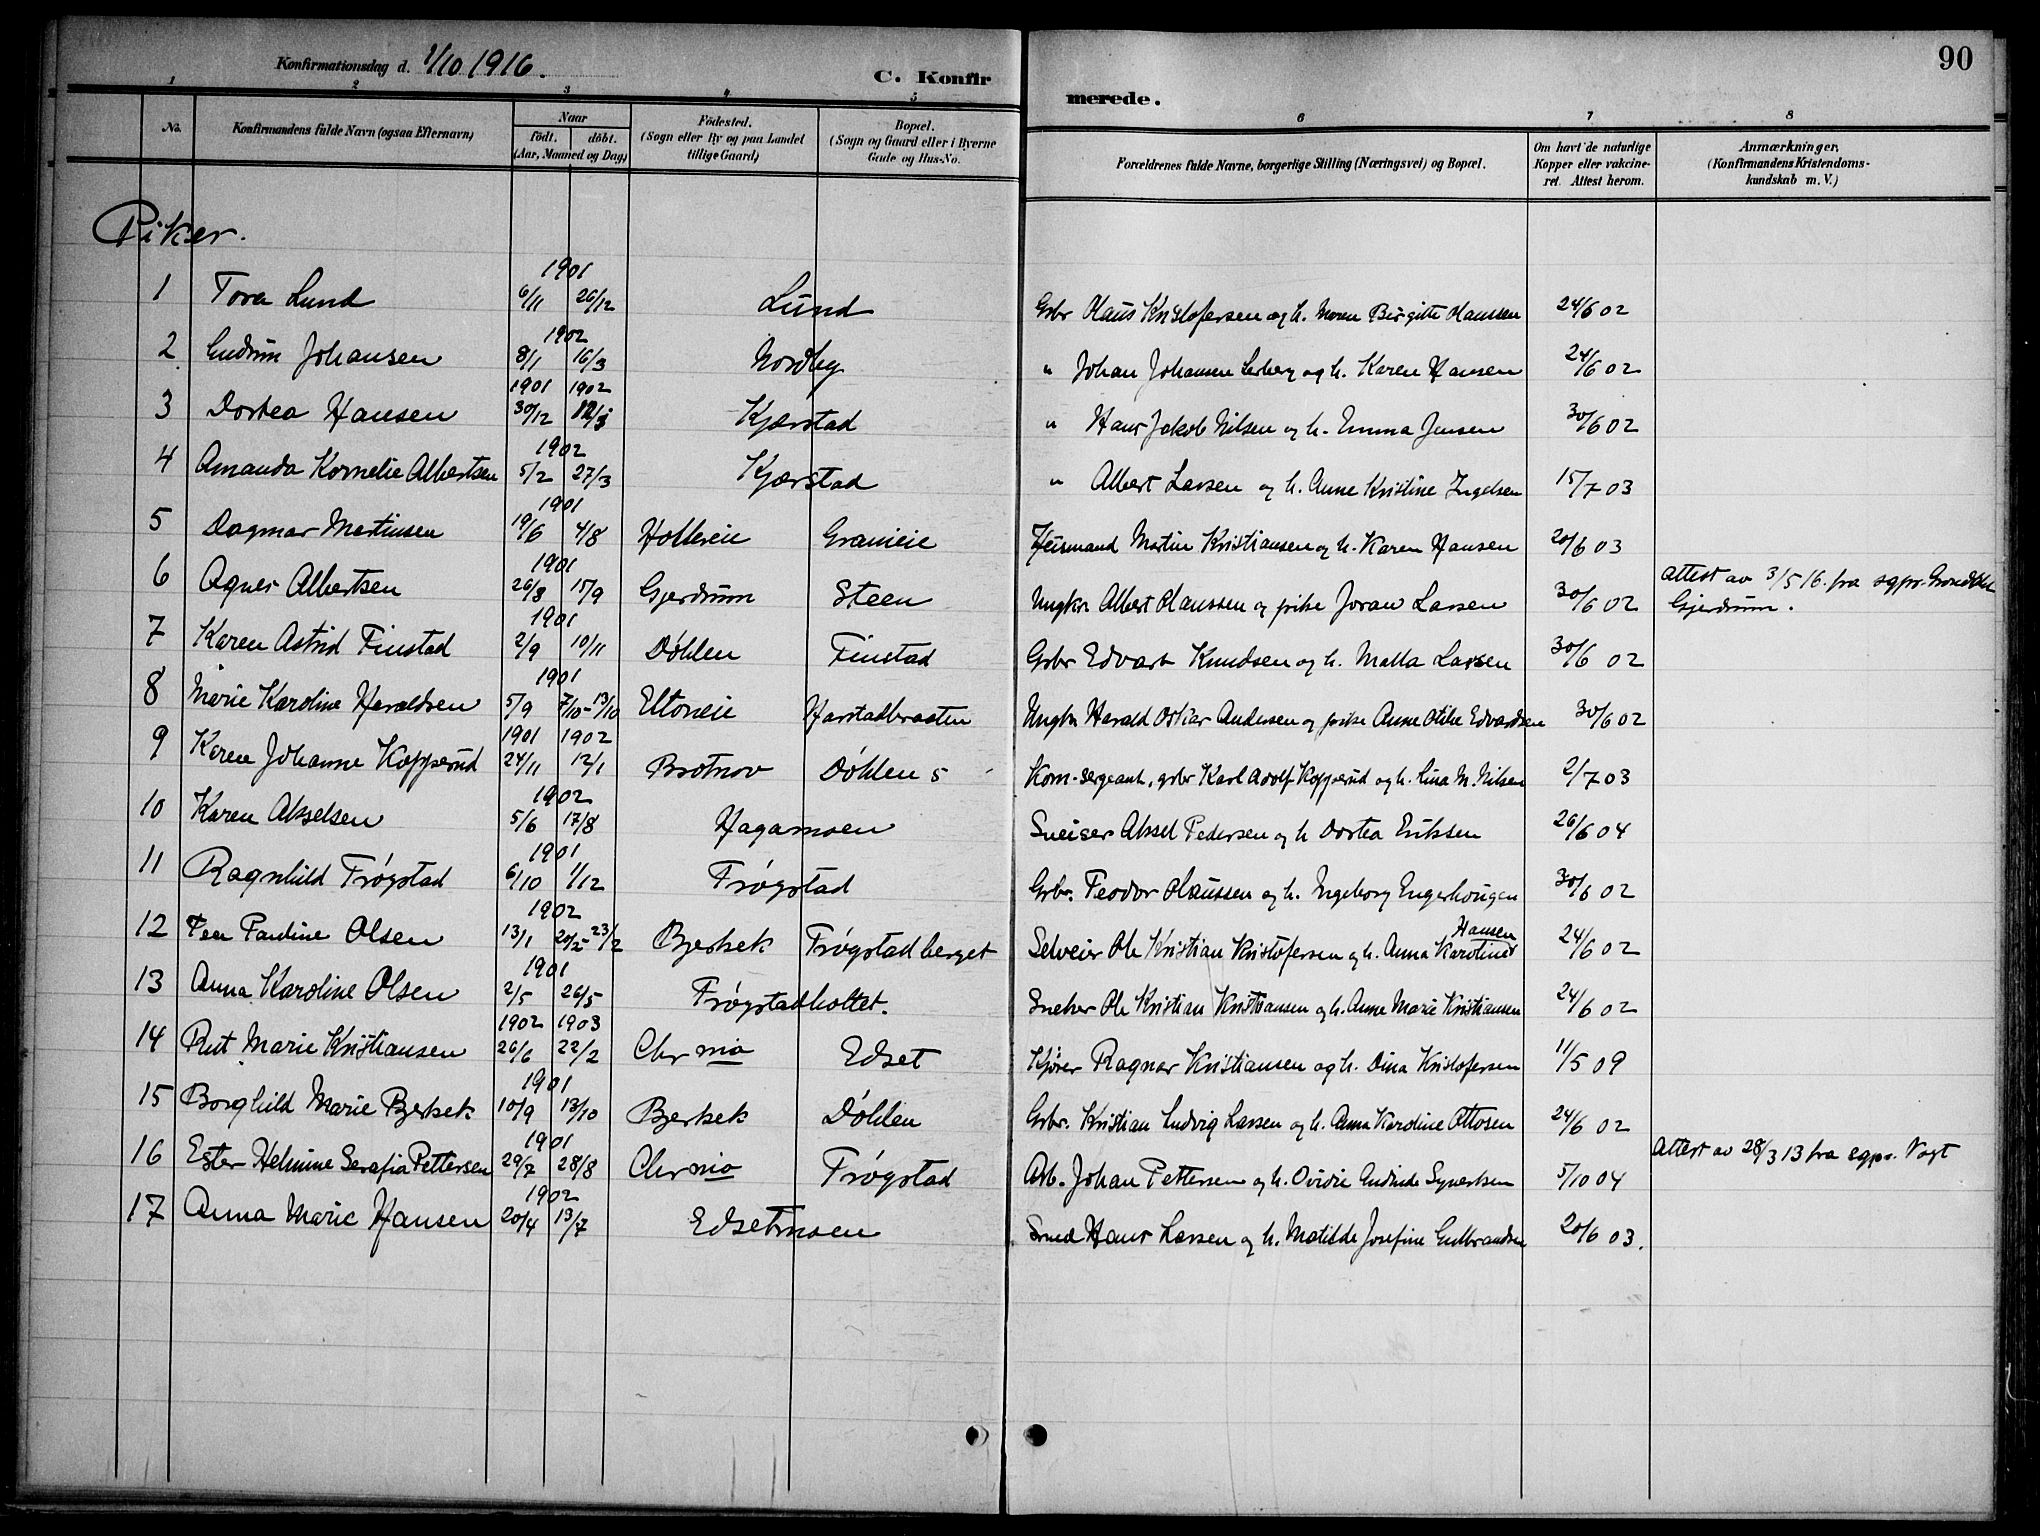 90
Konfirmationsdag d. 1/10 1916.
C. Konfirmerede.
1 2 3 4 5 6 7 8
No.
Konfirmandens fulde Navn (ogsaa Efternavn)
Naar
født. døbt.
(Aar, Maaned og Dag)
Fødested.
(Sogn eller By og paa Landet
tillige Gaard)
Bopæl.
(Sogn og Gaard eller i Byerne
Gade og Hus-No.
Forældrenes fulde Navne, borgerlige Stilling (Næringsvei) og Bopæl.
Om havt de naturlige
Kopper eller vakcine-
ret. Attest herom.
Anmærkninger,
(Konfirmandens Kristendoms-
kundskab m. V.)
Piker.
1901
1 Tora Lund 6/11 26/12 Lund Gbr Hans Kristofersen og h. Maren Birgitte Hanssen 24/6 02
1902
2 Gudrun Johansen 8/1 16/3 Nordby " Johan Johansen og h. Karen Hansen 24/6 02
1901 1902
3 Dortea Hansen 30/12 Kjærstad " Hans Jakob Nilsen og h. Emma Jensen 30/6 02
1902
4 Amanda Kornelie Albertsen 5/2 27/3 Kjærstad " Albert Larsen og h. Anne Kristine Ingelsen 15/7 03
1901
5 Dagmar Martinsen 19/6 4/8 Holtereie Granieie Husmand Martin Kristiansen og h. Karen Hansen 20/6 03
1901
6 Agnes Albertsen 26/8 15/9 Gjerdrum Steen Ungkr Albert Hanssen og pike Joran Larsen 30/6 02 Attest av 3/5 16. fra sgpr.
Gjerdrum.
1901
7 Karen Astrid Finstad 2/9 10/11 Døhlen Finstad Gbr Edvart Knudsen og h. Malla Larsen 30/6 02
1901
8 Marie Karoline Haraldsen 5/9 7/10-13/10 Eltoneie Harstadbraaten Ungkr Harald Oskar Andersen og pike Anne Otilie Edvardsen 30/6 02
1901 1902
9 Karen Johanne Kopperud 24/11 12/1 Brotnov Døhlen s Kom-sergeant, gbr Karl Adolf Kopperud og h. Lina M. Nilsen 2/7 03
1902
10 Karen Akselsen 5/6 17/8 Hagamoen Sveiser Aksel Pedersen og h Dortea Eriksen 26/6 04
1901
11 Ragnhild Frøgstad 6/10 1/12 Frøgstad Gbr. Teodor Hanssen og h. Ingeborg Engerhougen 30/6 02
1902
12 Tea Pauline Olsen 13/1 23/2 Berkek Frøgstadberget Selveier Ole Kristian Kristofersen og h. Anna Karoline Hansen 24/6 02
1901
13 Anna Karoline Olsen 2/5 26/5 Frøgstadholtet. Snekker Ole Kristian Kristiansen og h. Anne Marie Kristiansen 24/6 02
1902 1903
14 Rut Marie Kristiansen 26/6 22/2 Chrnia Edset Kjører Ragnar Kristiansen og h. Dina Kristofersen 11/5 09
1901
15 Borghild Marie Berkek 10/9 13/10 Berkek Døhlen Gbr. Kristian Ludvig Larsen og h. Anna Karoline Ottosen 24/6 02
1901
16 Ester Helmine Serafia Pettersen 29/7 28/8 Chrnia Frøgstad Arb. Johan Pettersen og h. Ovidie Syvertsen 5/10 04 Attest av 28/3 13 fra sgpr. Vogt
1902
17 Anna Marie Hansen 20/4 13/7 Edsetmoen Smed Hans Larsen og h. Matilde Josefine Gulbrandsen 20/6 03.